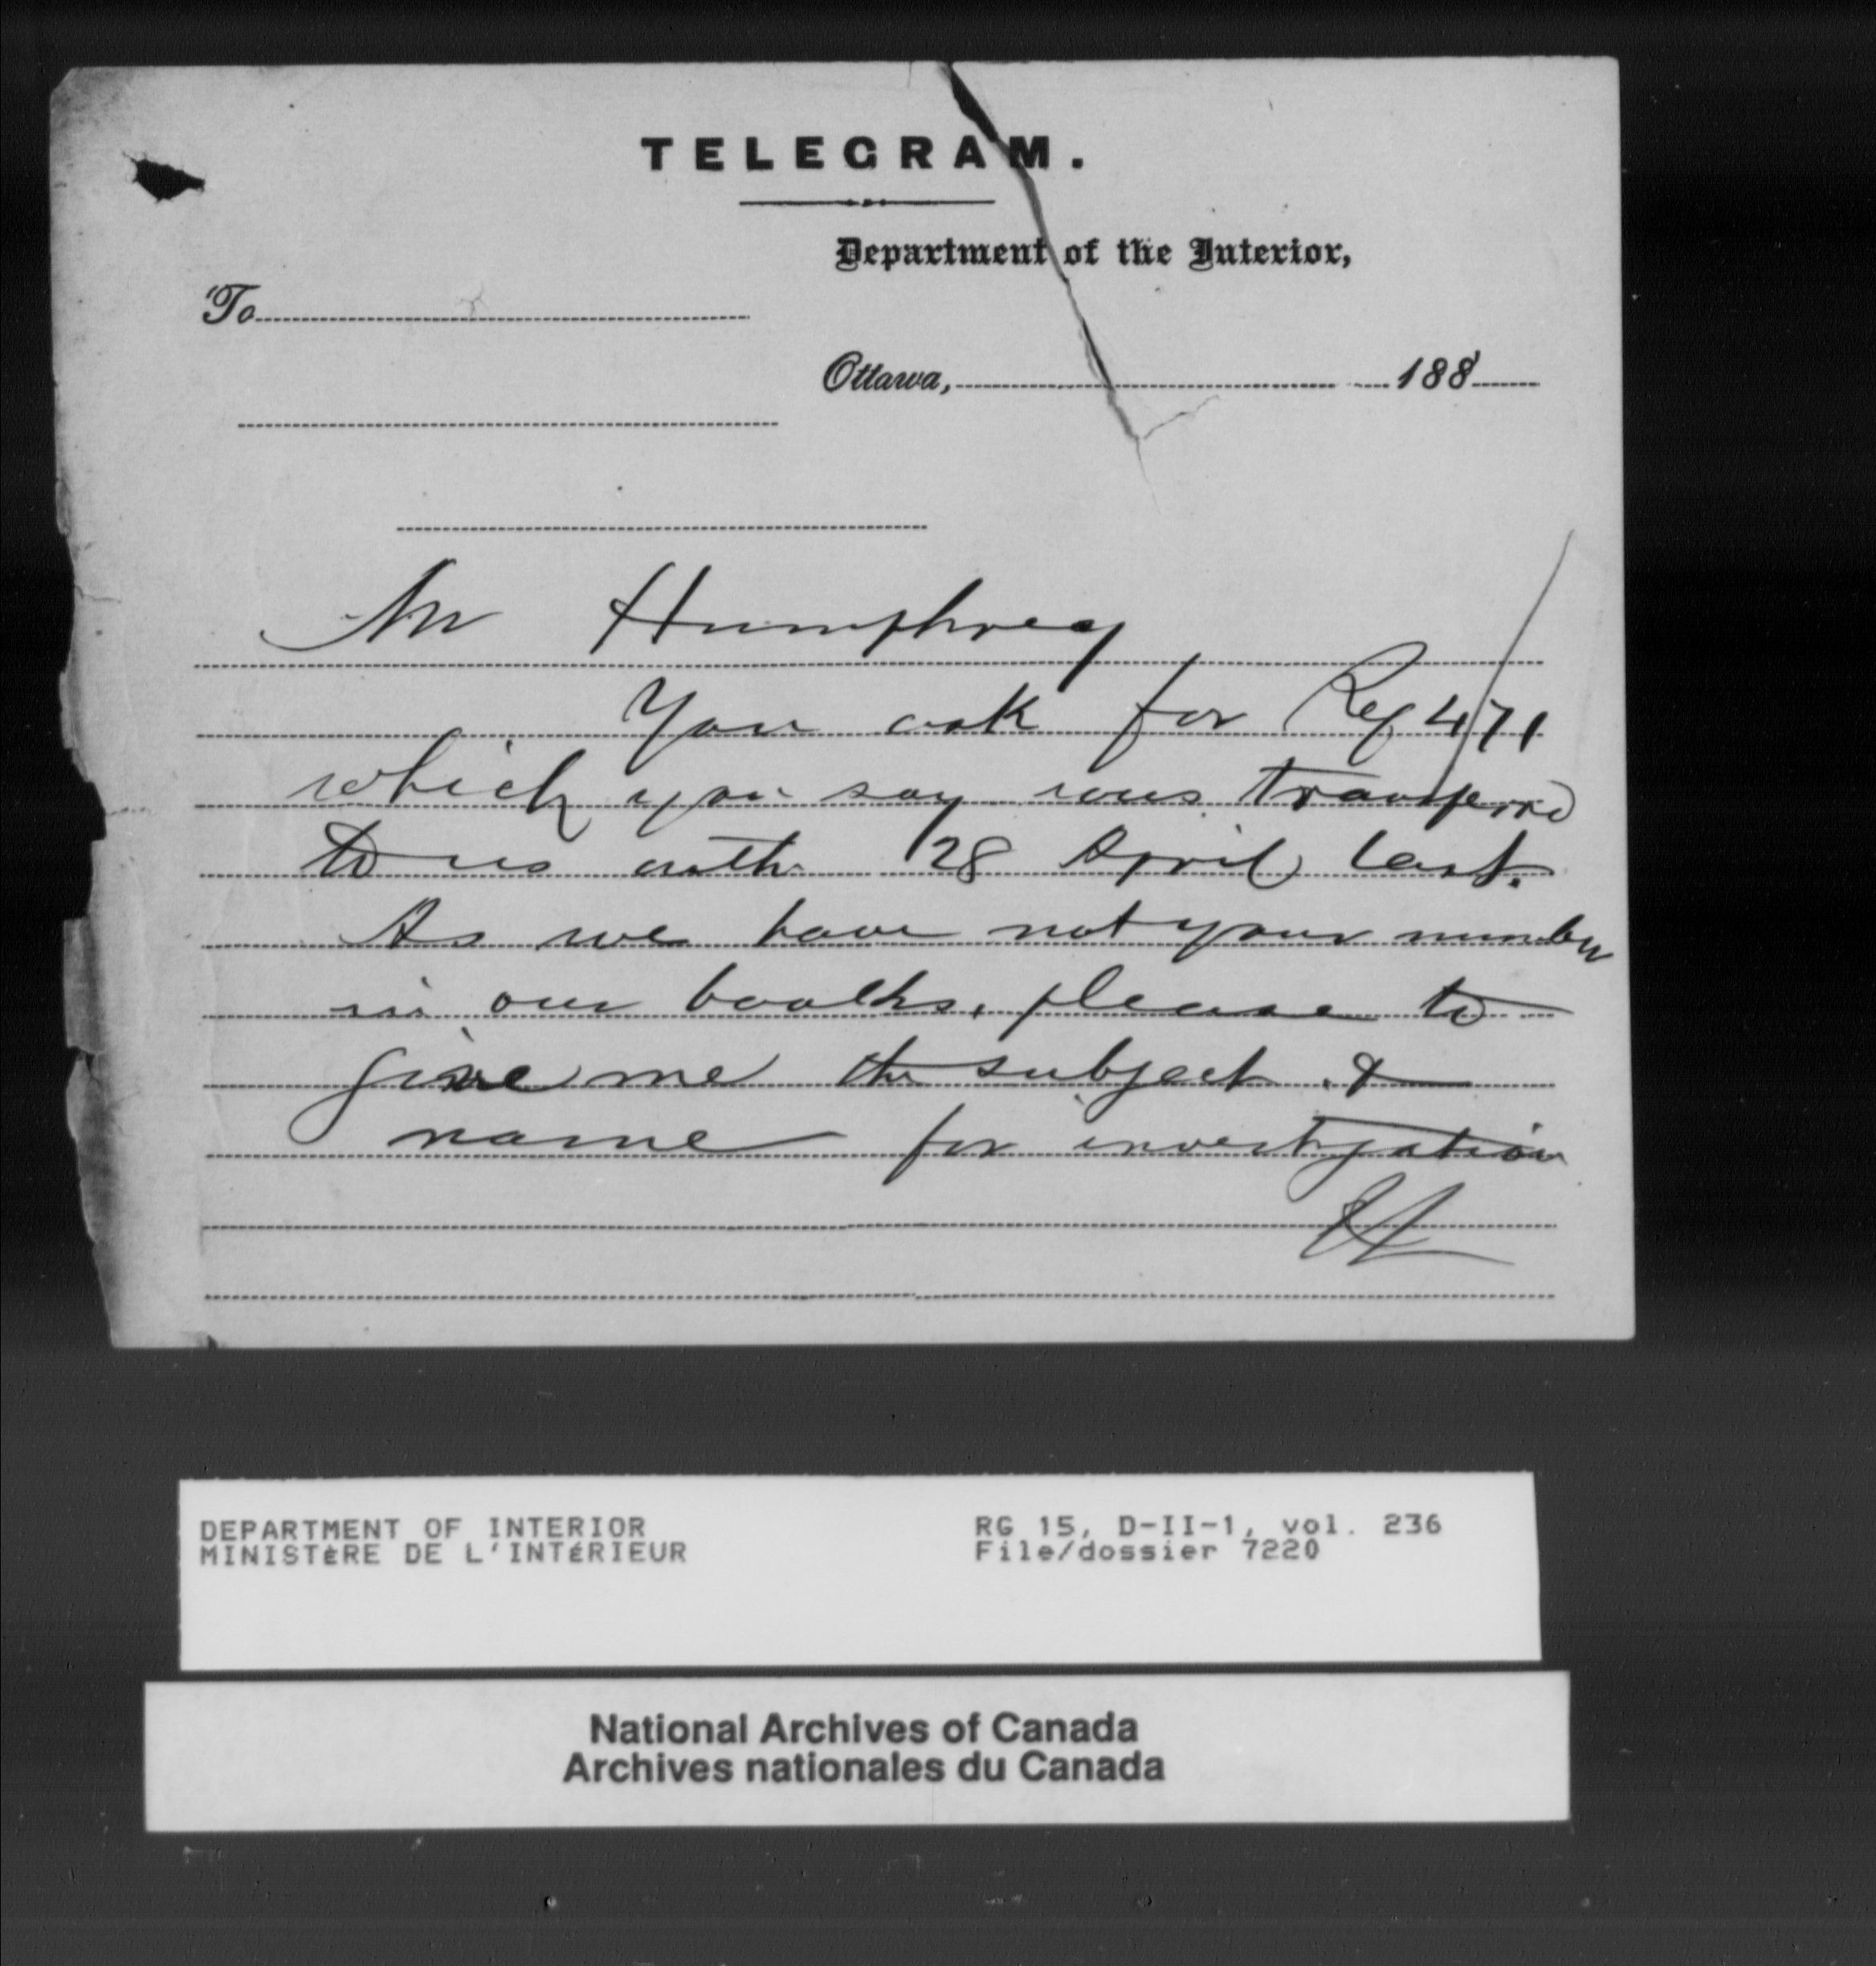 TELEGRAM.
Department of the Interior,
To
Ottawa, 188
Mr Humphrey
You ask for Ref 471
which you say was transferred
to us on the 28 April last.
As we have not your number
in our books, please to
give me the subject &
name for investigation
DEPARTMENT OF INTERIOR
MINISTÈRE DE L'INTÉRIEUR
RG 15, D-II-1, vol. 236
File/dossier 7220
National Archives of Canada
Archives nationales du Canada